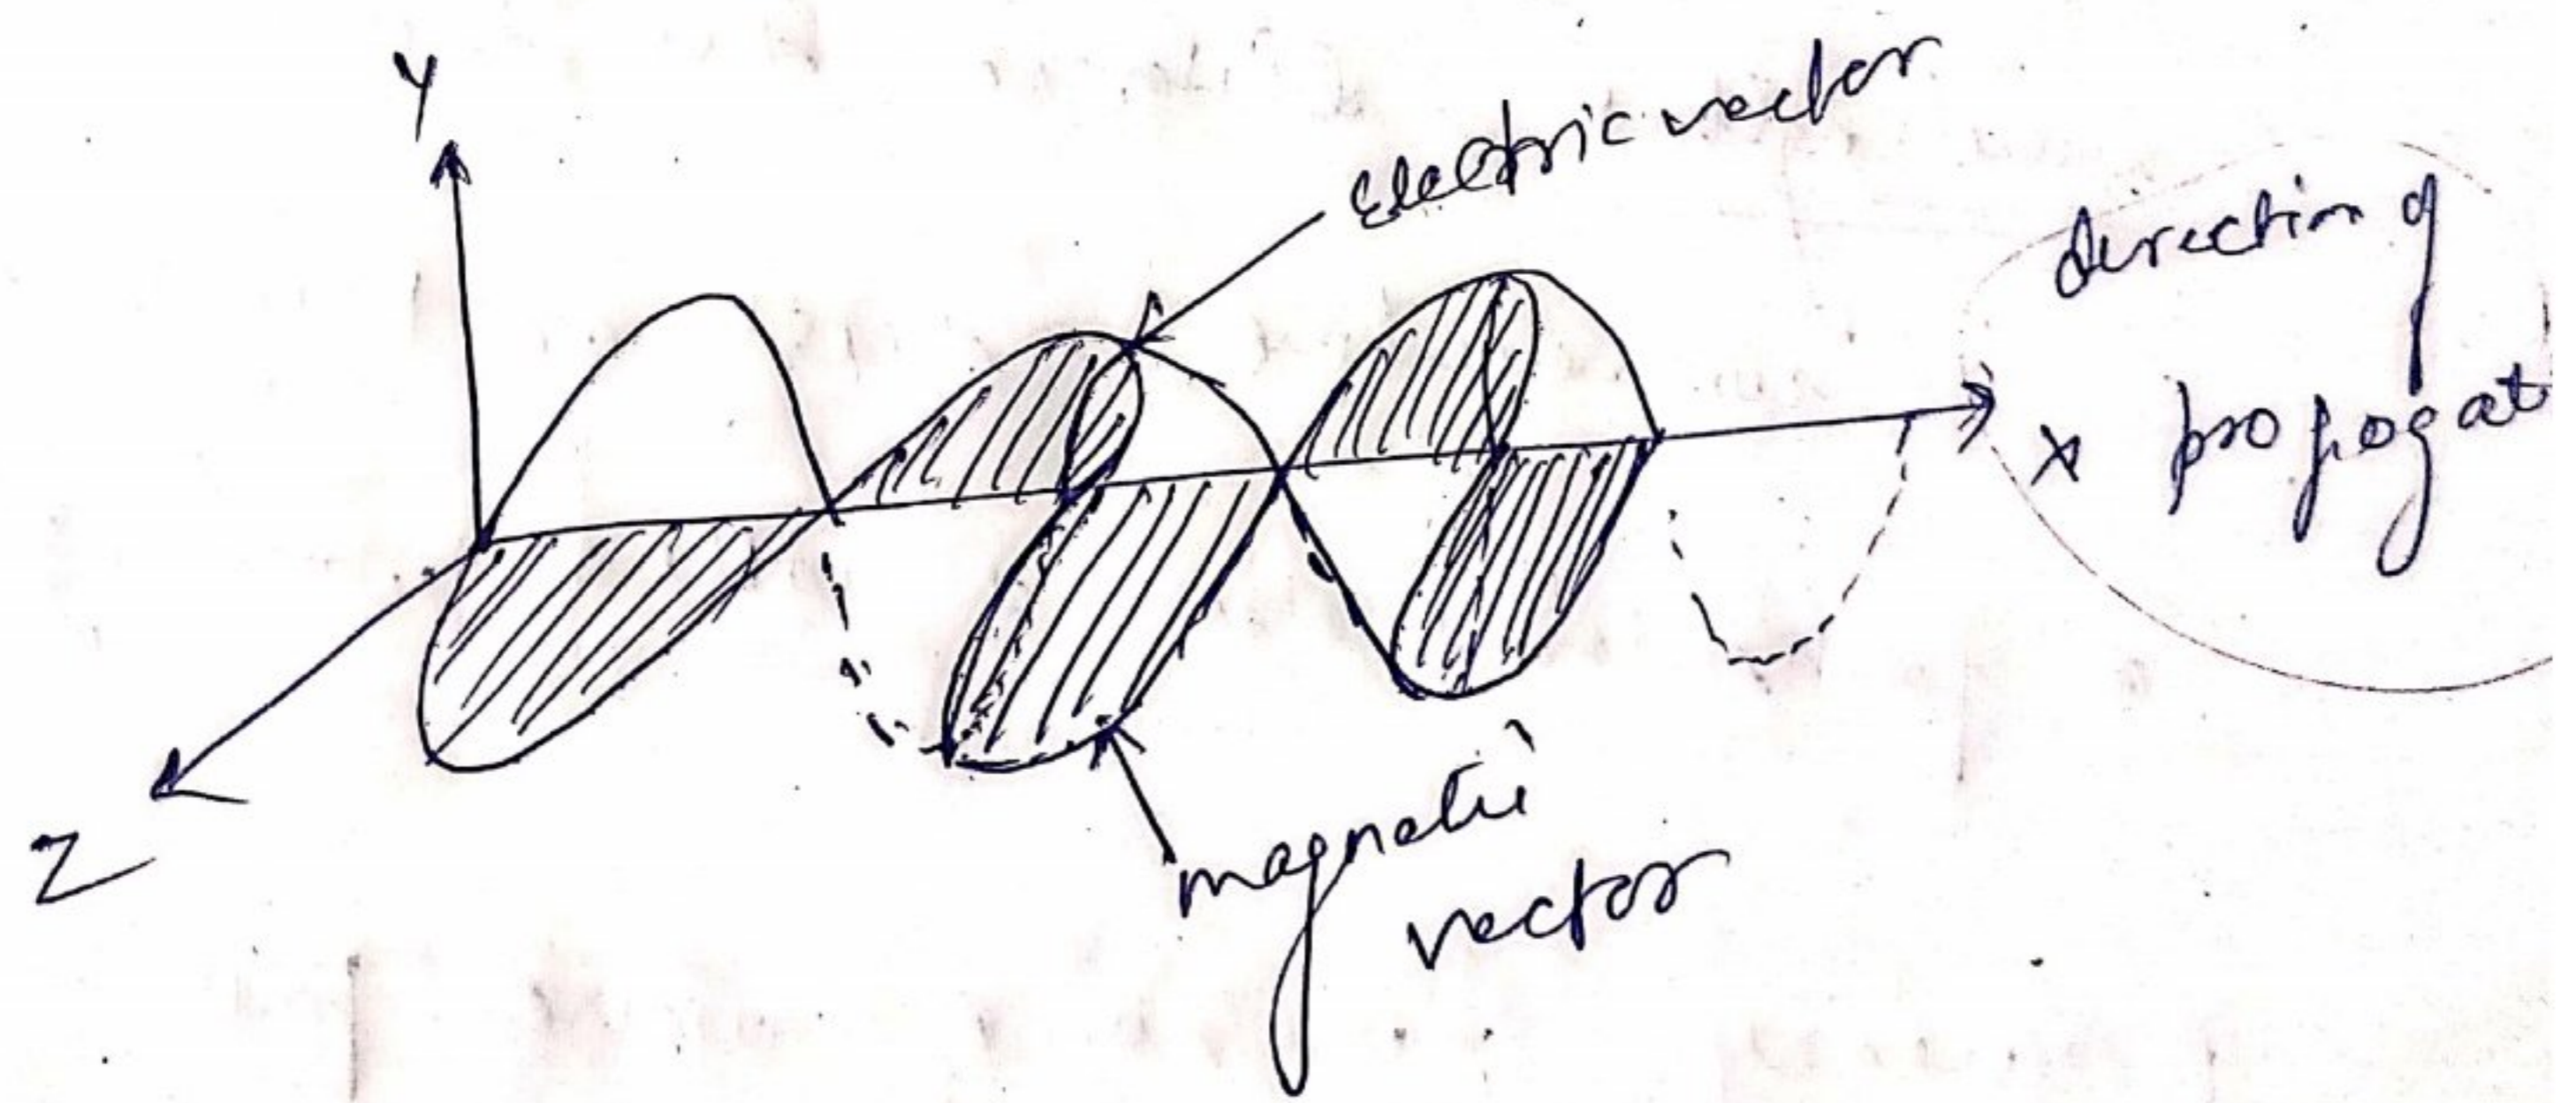 Y
Electric vector
direction of
x propogat
Z
magnetic
vector